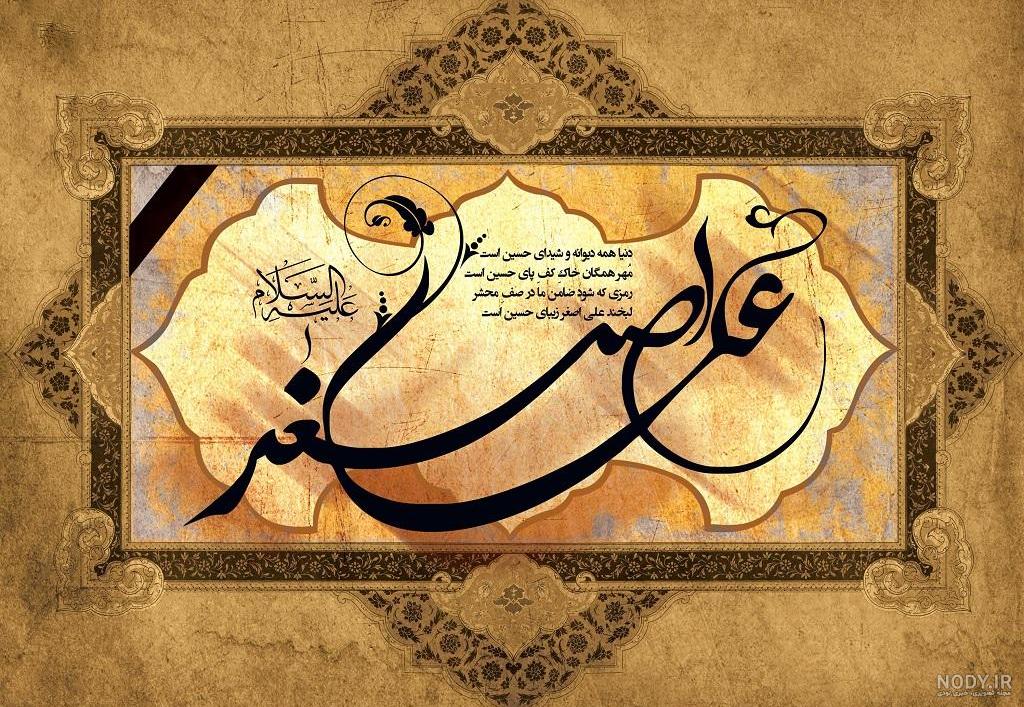 علی اصغر
علیه السّلام
دنیا همه دیوانه و شیدای حسین است
مهر همگان خاک کف پای حسین است
رمزی که شود ضامن ما در صف محشر
لبخند علی اصغر زیبای حسین است
NODY.IR
مجله تصویری، خبری نودی